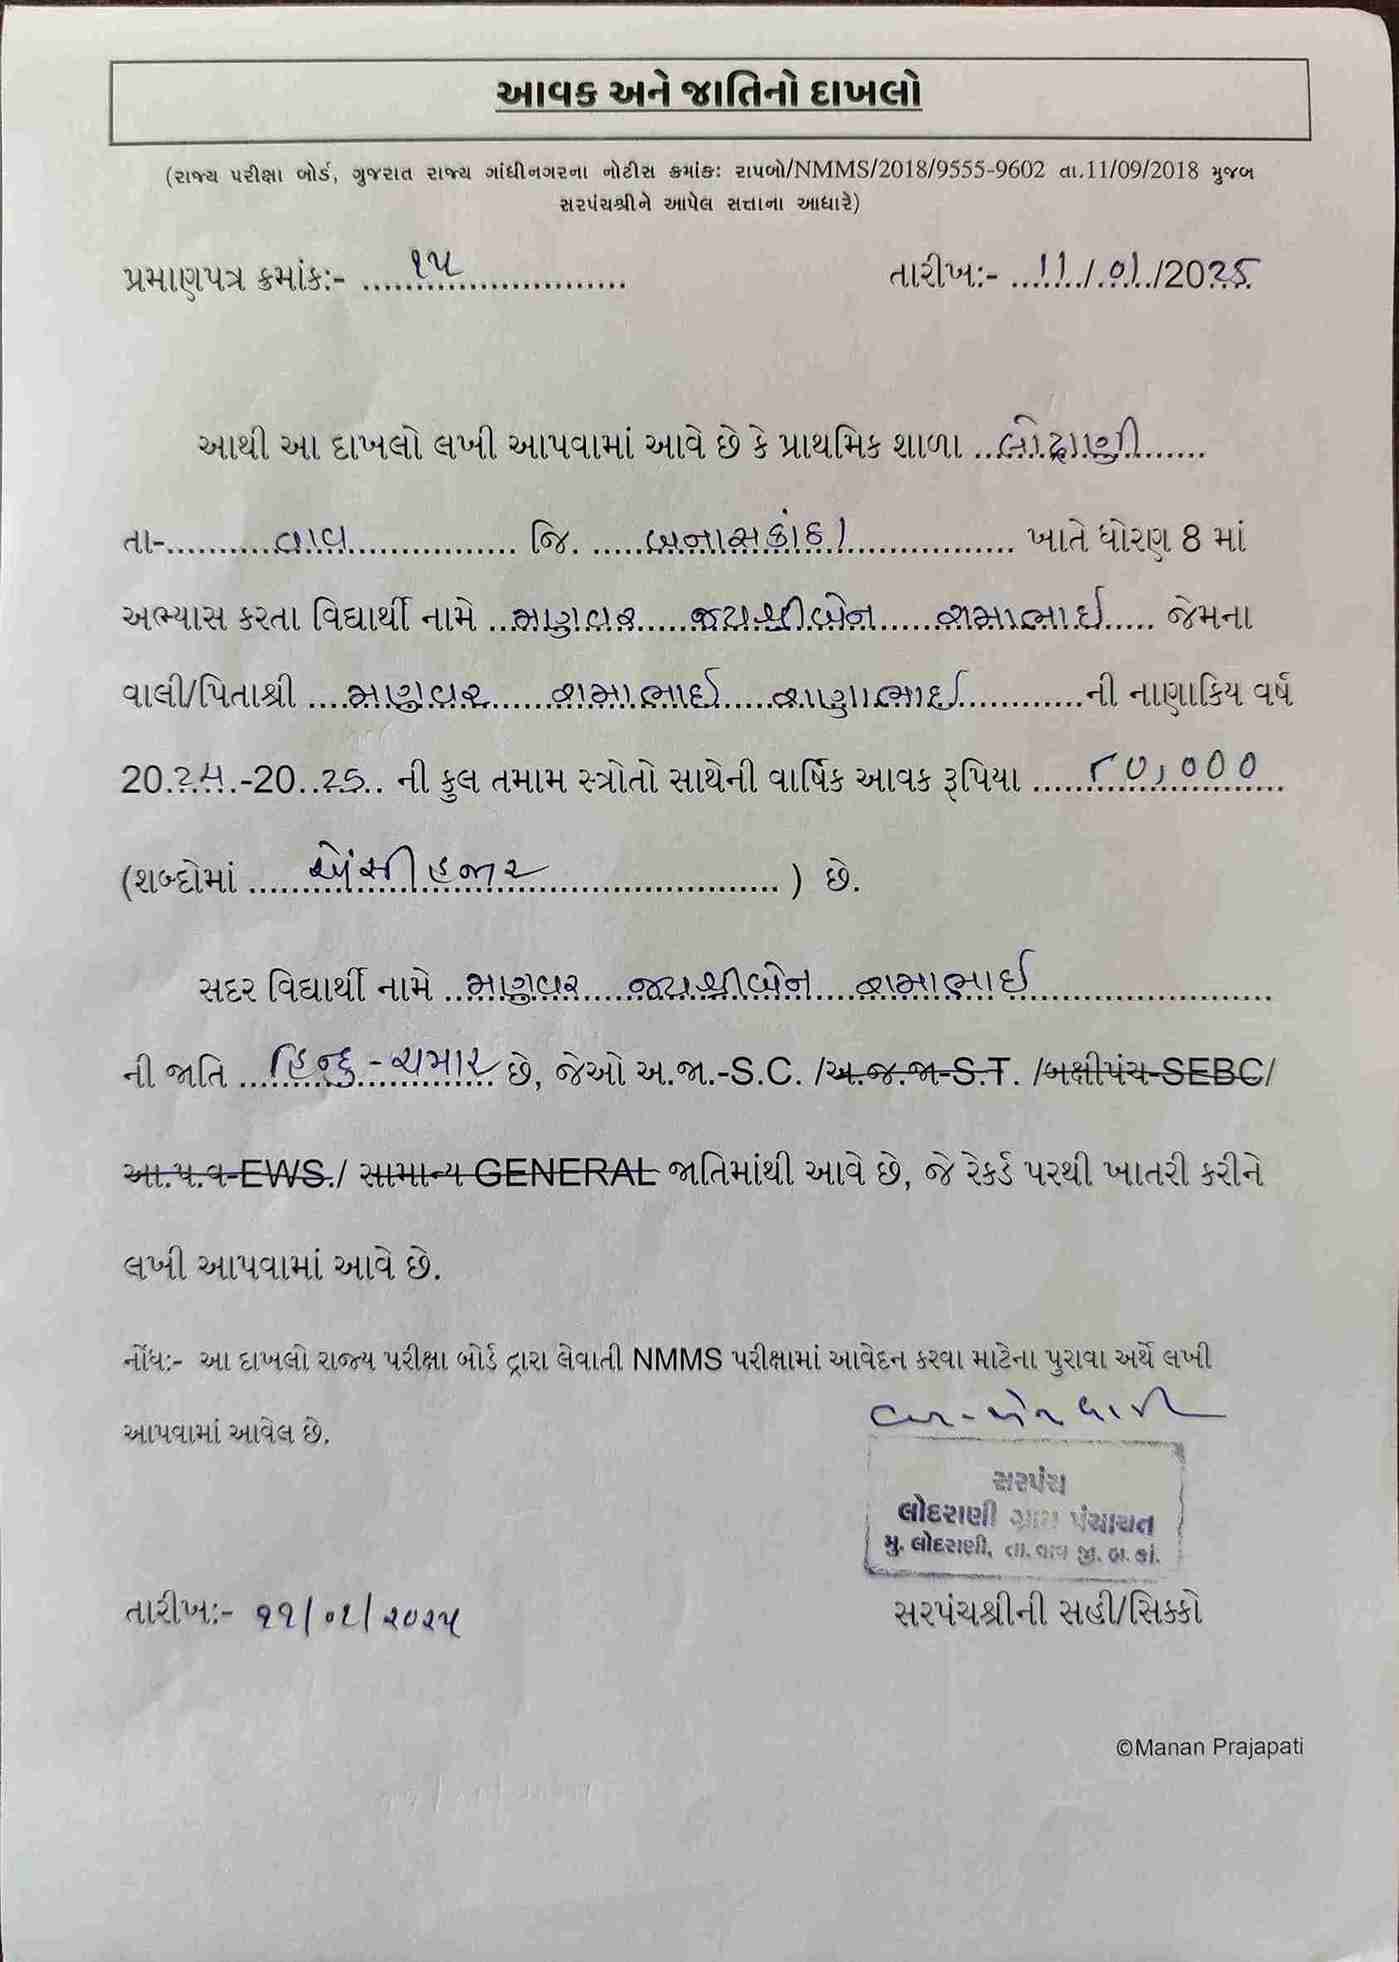 આવક અને જાતિનો દાખલો
(રાજ્ય પરીક્ષા બોર્ડ, ગુજરાત રાજ્ય ગાંધીનગરના નોટીસ ક્રમાંક: રાપબો/NMMS/2018/9555-9602 તા.11/09/2018 મુજબ
સરપંચશ્રીને આપેલ સત્તાના આધારે)
પ્રમાણપત્ર ક્રમાંક:- ૧૫ તારીખ:- 11/01/2025
આથી આ દાખલો લખી આપવામાં આવે છે કે પ્રાથમિક શાળા લોદ્રાણી
તા- વાવ જિ. બનાસકાંઠા ખાતે ધોરણ 8 માં
અભ્યાસ કરતા વિદ્યાર્થી નામે માણવર જયશ્રીબેન શમાભાઈ જેમના
વાલી/પિતાશ્રી માણવર શમાભાઈ ભાઈ ની નાણાકિય વર્ષ
2024-2025 ની કુલ તમામ સ્ત્રોતો સાથેની વાર્ષિક આવક રૂપિયા ૮૦,૦૦૦
(શબ્દોમાં એંસી હજાર ) છે.
સદર વિદ્યાર્થી નામે માણવર જયશ્રીબેન શમાભાઈ
ની જાતિ હિન્દુ - ચમાર છે, જેઓ અ.જા.-S.C. /અ.જ.જા-S.T. /બક્ષીપંચ-SEBC/
આ.પ.વ-EWS./ સામાન્ય GENERAL જાતિમાંથી આવે છે, જે રેકર્ડ પરથી ખાતરી કરીને
લખી આપવામાં આવે છે.
નોંધ:- આ દાખલો રાજ્ય પરીક્ષા બોર્ડ દ્વારા લેવાતી NMMS પરીક્ષામાં આવેદન કરવા માટેના પુરાવા અર્થે લખી
આપવામાં આવેલ છે.
સરપંચ
લોદરાણી ગ્રામ પંચાયત
મુ. લોદરાણી, તા. વાવ જી. બ. કાં.
તારીખ:- ૧૧/૦૧/૨૦૨૫ સરપંચશ્રીની સહી/સિક્કો
©Manan Prajapati